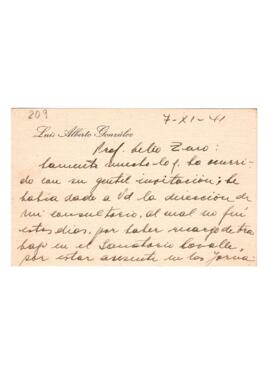 209
7-XI-41
Luis Alberto González
Prof. Lelio Zeno:
Lamento mucho lo q. ha ocurri-
do con su gentil invitación; le
había dado a Vd la dirección de
mi consultorio, al cual no fuí
estos días, por haber recargo de tra
bajo en el Sanatorio Lavalle,
por estar ausente en las Jorna-